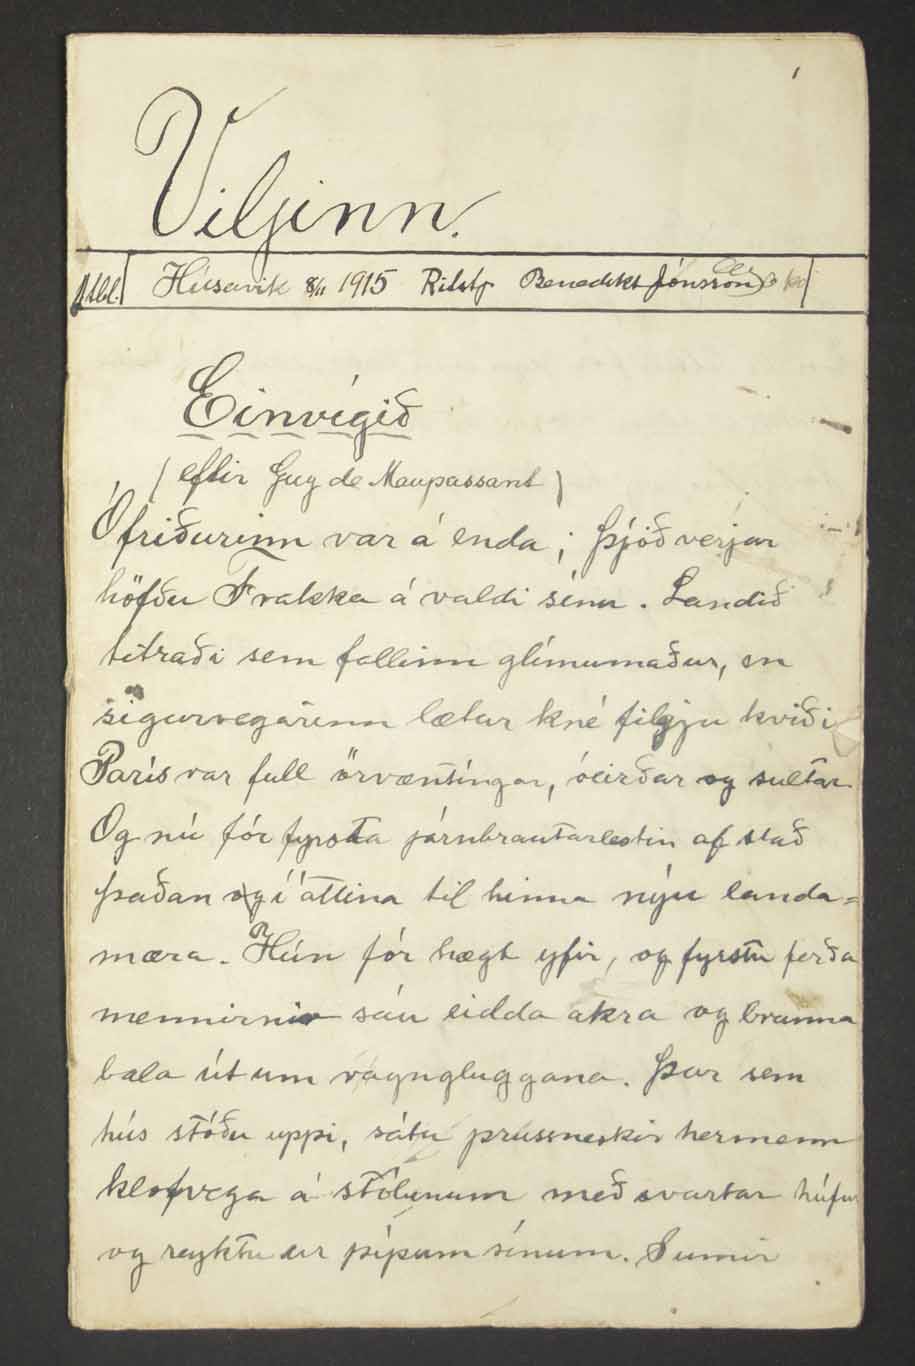 1
Viljinn.
1 tbl. Húsavík 8/11 1915 Ritstj Benedikt Jónsson
Einvígið
(eftir Guy de Maupassant)
Ófriðurinn var á enda; Þjóðverjar
höfðu Frakka á valdi sínu. Landið
titraði sem fallinn glímumaður, en
sigurvegarinn lætur kné filgju kviði
París var full örvæntingar, óeirðar og sultar
Og nú fór fyrsta járnbrautarlestin af stað
þaðan og í áttina til hinna nýu landa=
mæra. Hún fór hægt yfir, og fyrstu ferða
mennirnir sáu eidda akra og brunna
bala út um vagngluggana. Þar sem
hús stóðu uppi, sátu prússneskir hermenn
klofvega á stólunum með svartar húfur
og reyktu úr pípum sínum. Sumir